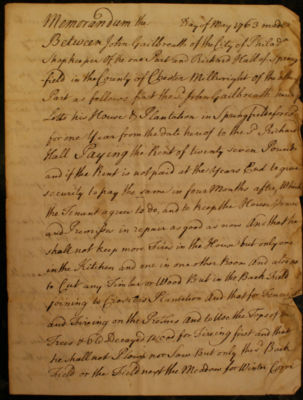 Memorandum the Day of May 1763 made
Between John Gailbreath of the City of Philad
Shopkeeper of the one Part and Richard Hall of Spring
field in the County of Chester Millwright of the other
Part as follows first the sd John Gailbreath
Letts his House & Plantation in Springfield
for one Year from the date hereof to the sd Richard
Hall Paying the Rent of twenty seven Pounds
and if the Rent is not paid at the Years End to give
security to pay the same in four Months after, Which
the Tenant agree to do, and to keep the House
and Premises in repair as good as now And that he
shall not keep more Fires in the House but only one
in the Kitchen and one in one other Room And also no
to Cut any Timber or Wood But in the Back Field
joining to Plantation And that for
and Fireing on the Premises And to Use the Tops of
Trees & Old Decayed Wood for Fireing first and that
he shall not Plough nor Sow But only the Back
Field or the Field next the Meadow for Winter Corn